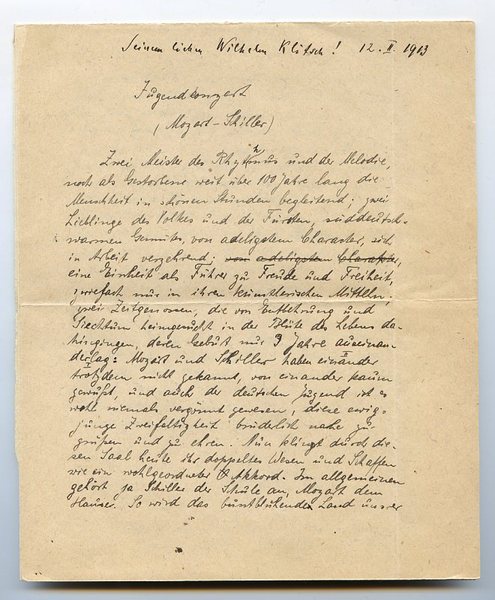 Seinem lieben Wilhelm Klitsch! 12. II. 1913
Jugendkonzert
(Mozart-Schiller)
Zwei Meister des Rhythmus und der Melodie,
noch als Gestorbene weit über 100 Jahre lang die
Menschheit in schönen Stunden begleitend; zwei
Lieblinge des Volkes und der Fürsten, süddeutsch-
warmen Gemütes, von adeligstem Charakter, sich
in Arbeit verzehrend; von adeligstem Charakter,
eine Einheit als Führer zu Freude und Freiheit,
zwiefach nur in ihren künstlerischen Mitteln;
zwei Zeitgenossen, die von Entbehrung und
Siechtum heimgesucht in der Blüte des Lebens da-
hingingen, deren Geburt nur 3 Jahre auseinan-
derlag: Mozart und Schiller haben einander
trotzdem nicht gekannt, von einander kaum
gewußt, und auch der deutschen Jugend ist es
wohl niemals vergönnt gewesen, diese ewig-
junge Zweifaltigkeit brüderlich nahe zu
grüßen und zu ehren. Nun klingt durch die-
sen Saal heute ihr doppeltes Wesen und Schaffen
wie ein wohlgeordneter Akkord. Im allgemeinen
gehört ja Schiller der Schule an, Mozart dem
Hause. So wird das buntblühende Land unsrer